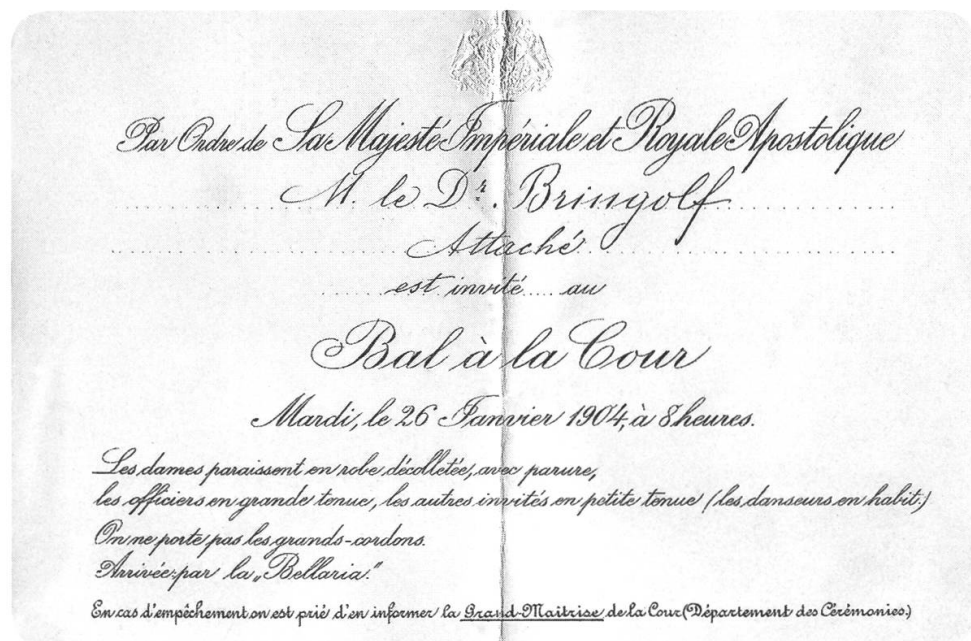 Par Ordre de Sa Majesté Impériale et Royale Apostolique
M. le Dr. Bringolf
Attaché
est invité au
Bal à la Cour
Mardi, le 26 Janvier 1904, à 8 heures.
Les dames paraissent en robe décolletée, avec parure,
les officiers en grande tenue, les autres invités en petite tenue (les danseurs en habit.)
On ne porte pas les grands-cordons.
Arrivée par la „Bellaria."
En cas d'empêchement on est prié d'en informer la Grand-Maîtrise de la Cour (Département des Cérémonies.)